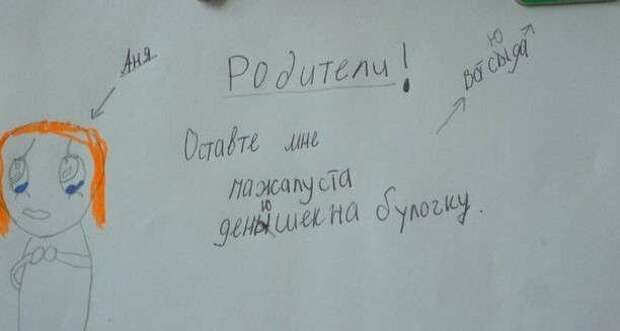 Аня
Родители!
Вот сюда
Оставте мне
пажалуста
денюшек на булочку.